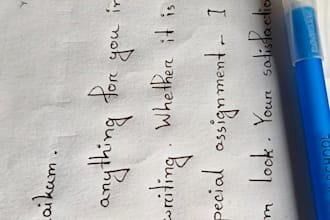 aikum.
anything for you in
writing. Whether it is
pecial assignment - I
m look. Your satisfactio